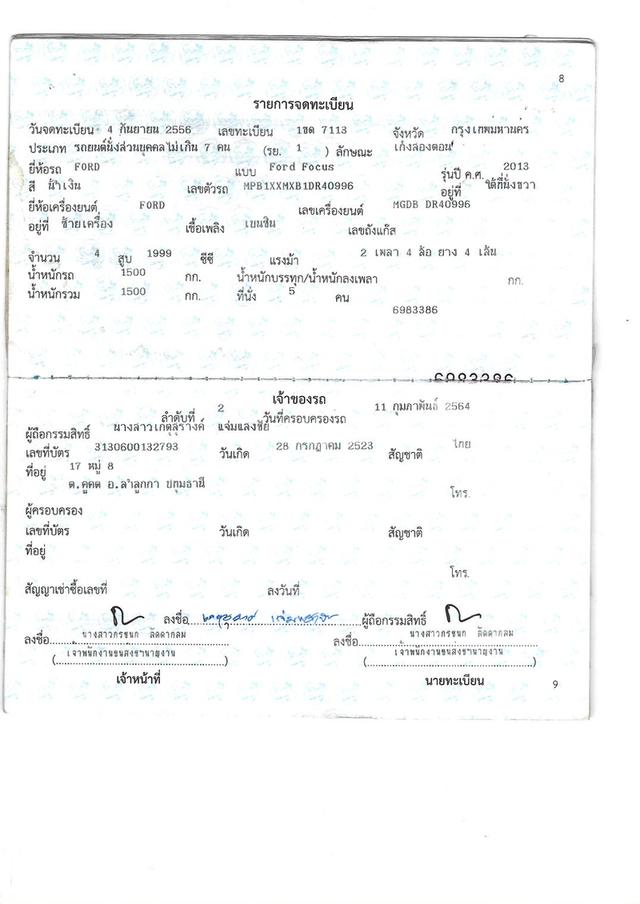 8
รายการจดทะเบียน
วันจดทะเบียน 4 กันยายน 2556 เลขทะเบียน 1ขด 7113 จังหวัด กรุงเทพมหานคร
ประเภท รถยนต์นั่งส่วนบุคคลไม่เกิน 7 คน (รย. 1 ) ลักษณะ เก๋งสองตอน
ยี่ห้อรถ FORD แบบ Ford Focus รุ่นปี ค.ศ. 2013
สี น้ำเงิน เลขตัวรถ MPB1XXMXB1DR40996 อยู่ที่ ใต้ที่นั่งขวา
ยี่ห้อเครื่องยนต์ FORD เลขเครื่องยนต์ MGDB DR40996
อยู่ที่ ซ้ายเครื่อง เชื้อเพลิง เบนซิน เลขถังแก๊ส
จำนวน 4 สูบ 1999 ซีซี แรงม้า 2 เพลา 4 ล้อ ยาง 4 เส้น
น้ำหนักรถ 1500 กก. น้ำหนักบรรทุก/น้ำหนักลงเพลา กก.
น้ำหนักรวม 1500 กก. ที่นั่ง 5 คน
6983386
เจ้าของรถ
ลำดับที่ 2 วันที่ครอบครองรถ 11 กุมภาพันธ์ 2564
ผู้ถือกรรมสิทธิ์ นางสาวเกตุสุรางค์ แจ่มแสงชัย
เลขที่บัตร 3130600132793 วันเกิด 28 กรกฎาคม 2523 สัญชาติ ไทย
ที่อยู่ 17 หมู่ 8
ต.คูคต อ.ลำลูกกา ปทุมธานี
โทร.
ผู้ครอบครอง
เลขที่บัตร วันเกิด สัญชาติ
ที่อยู่
โทร.
สัญญาเช่าซื้อเลขที่ ลงวันที่
ลงชื่อ ผู้ถือกรรมสิทธิ์
ลงชื่อ นางสาวกรชนก ลัดดากลม ลงชื่อ นางสาวกรชนก ลัดดากลม
(เจ้าพนักงานขนส่งชำนาญงาน) (เจ้าพนักงานขนส่งชำนาญงาน)
เจ้าหน้าที่ นายทะเบียน
9